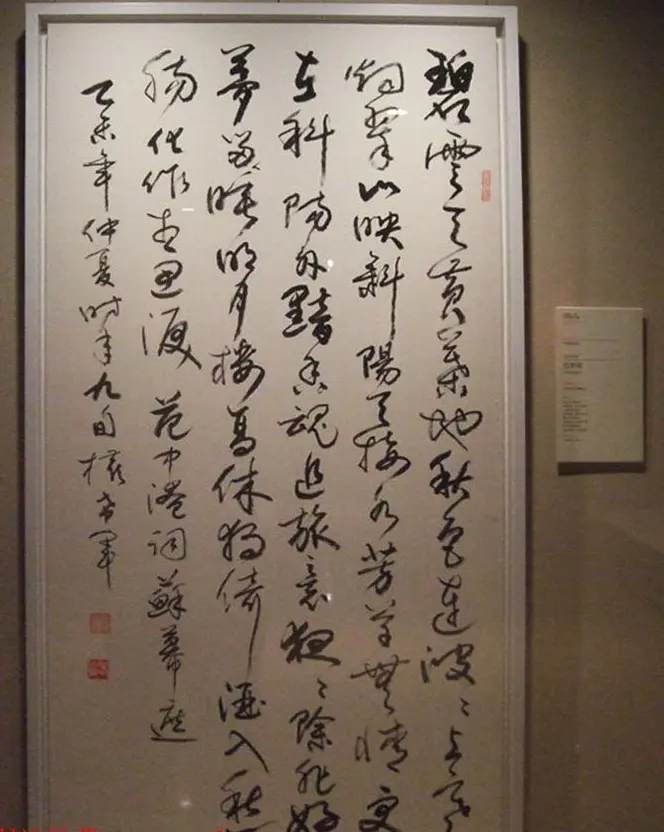 碧雲天黃葉地秋色連波〻上寒
烟翠山映斜陽天接水芳草無情更
在斜陽外黯鄉魂追旅意夜〻除非好
夢留人睡明月樓高休獨倚酒入愁
腸化作相思淚 范中淹詞蘇幕遮
年仲夏時年九旬